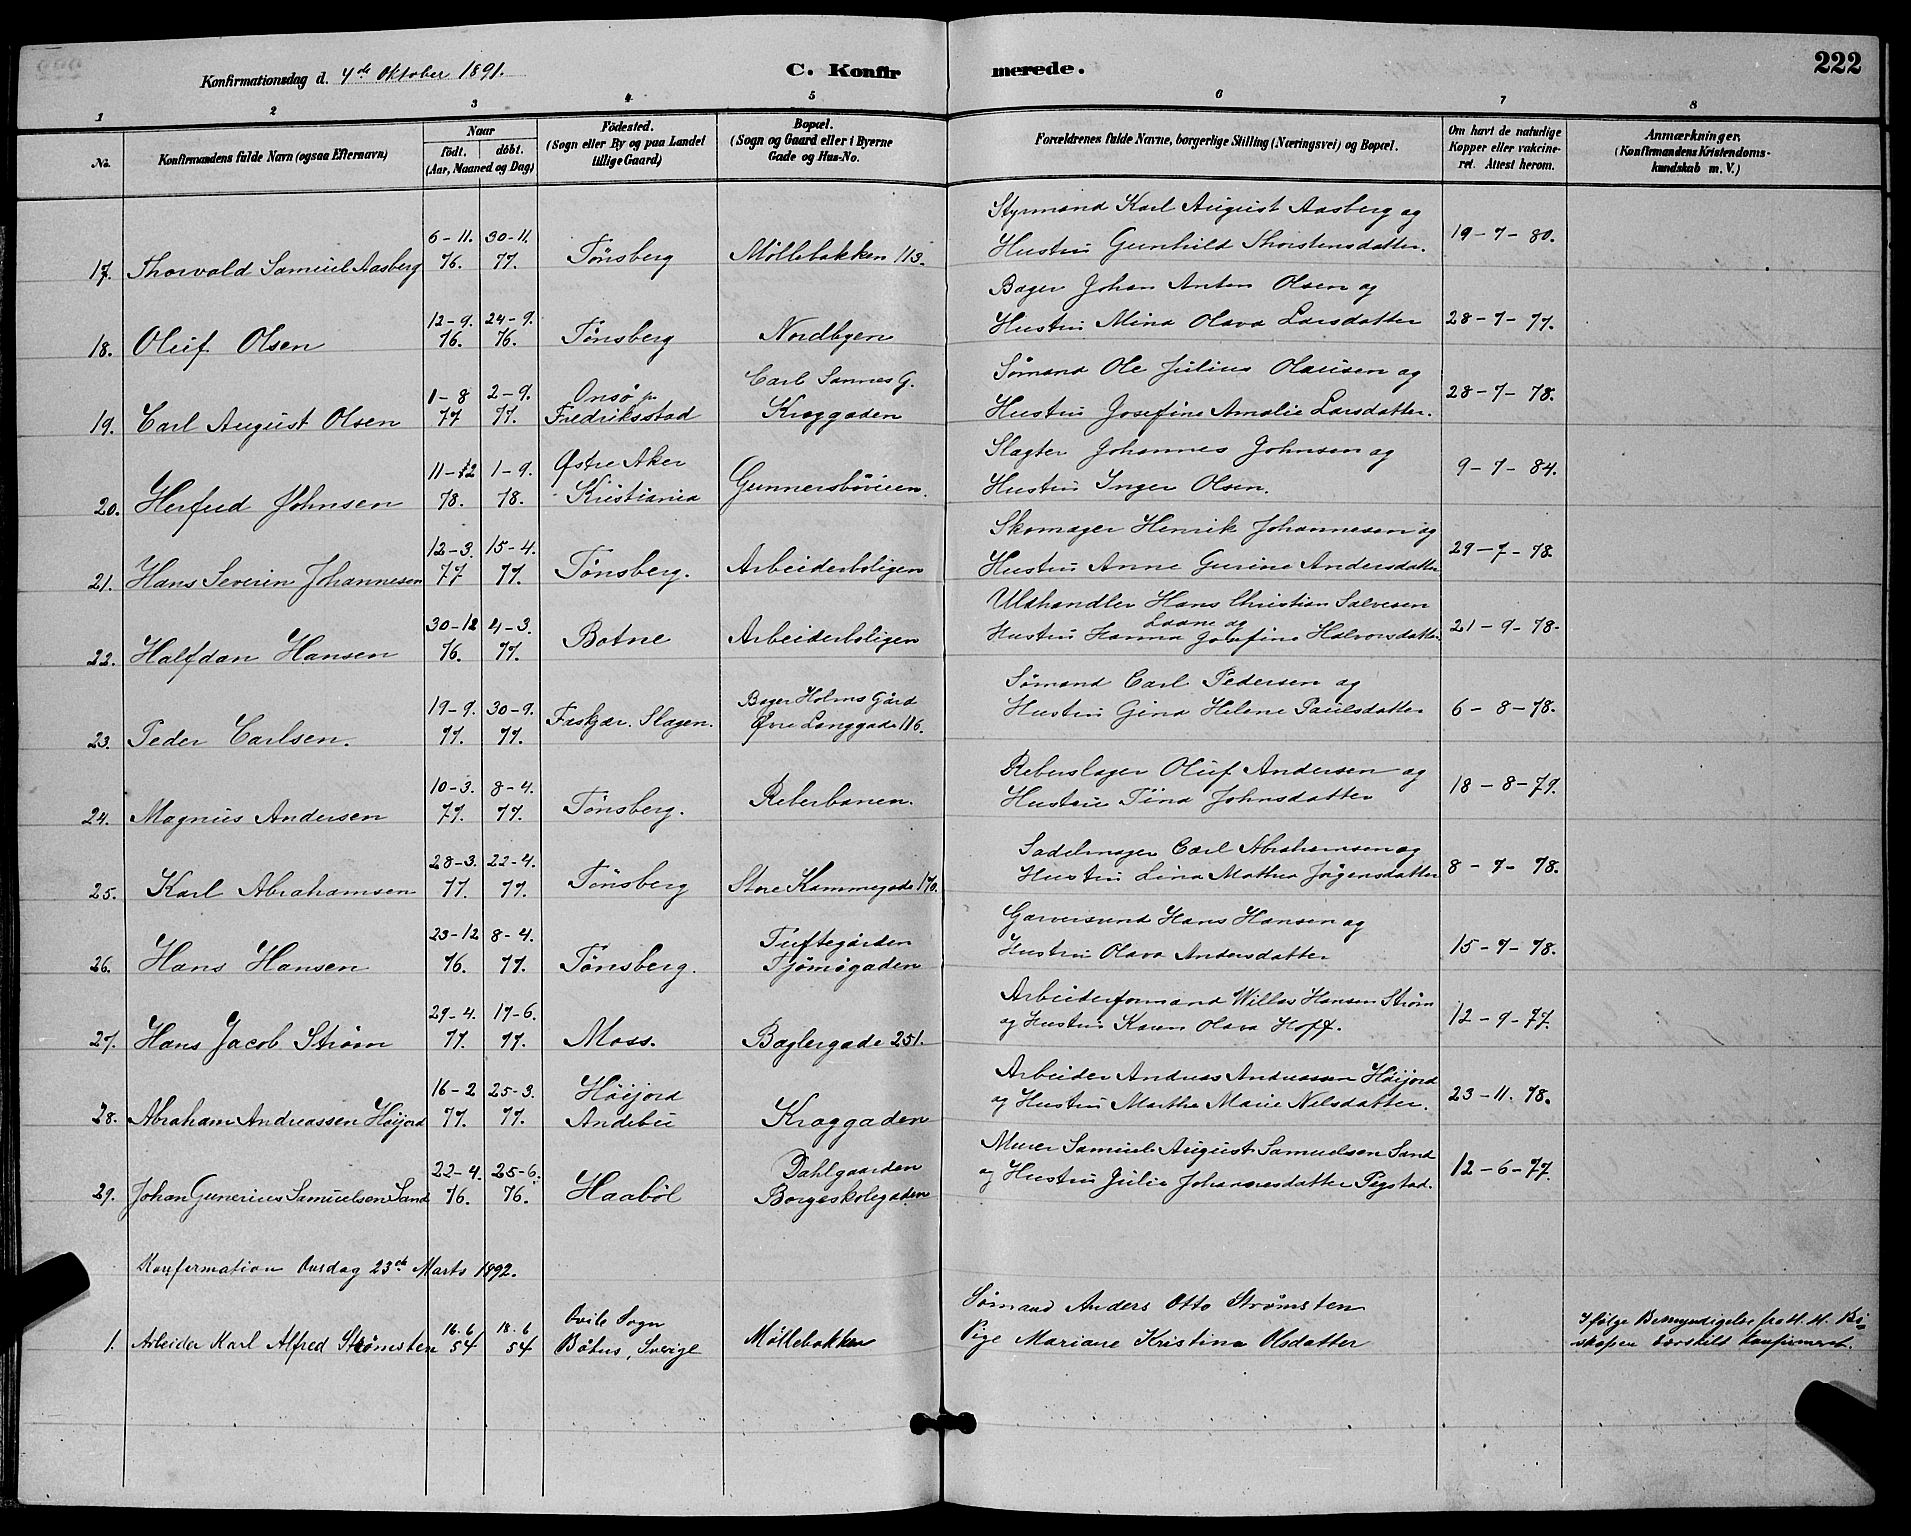 222
Konfirmationsdag d. 4de Oktober 1891.
C. Konfirmerede.
1 2 3 4 5 6 7 8
No.
Konfirmandens fulde Navn (ogsaa Efternavn)
Naar
födt. döbt.
(Aar, Maaned og Dag)
Födested.
(Sogn eller By og paa Landet
tillige Gaard)
Bopæl.
(Sogn og Gaard eller i Byerne
Gade og Hus-No.
Forældrenes fulde Navne, borgerlige Stilling (Næringsvei) og Bopæl.
Om havt de naturlige
Kopper eller vakcine-
ret. Attest herom.
Anmærkninger,
(Konfirmandens Kristendoms-
kundskab m. V.)
17. Thorvald Samuel Aasberg 6-11. 76. 30-11. 77. Tønsberg Møllebakken 113.
Styrmand Karl August Aasberg og
Hustru Gunhild Thorstensdatter. 19-7-80.
18. Oluf Olsen 12-9. 76. 24-9. 76. Tønsberg Nordbyen
Bager Johan Anton Olsen og
Hustru Mina Olava Larsdatter 28-7-77.
19. Carl August Olsen 1-8 77 2-9. 77. Onsö pr. Fredriksstad Carl Sannes G. Kraggaden
Sømand Ole Julius Olausen og
Hustru Josefine Amalie Larsdatter. 28-7-78.
20. Herfred Johnsen 11-12 78. 1-9. 78. Østre Aker Kristiania Gunnersbøveien.
Slagter Johannes Johnsen og
Hustru Inger Olsen. 9-7-84.
21. Hans Severin Johannesen 12-3. 77 15-4. 77. Tønsberg. Arbeiderboligen
Skomager Henrik Johannesen og
Hustru Anne Gurine Andersdatter 29-7-78.
22. Halfdan Hansen 30-12 76. 4-3. 77. Botne Arbeiderboligen
Uldhandler Hans Christian Salvesen
Laane og
Hustru Hanna Josefine Halvorsdatter 21-9-78.
23. Peder Carlsen. 19-9. 77. 30-9. 77. Faskjær, Slagen. Bager Holms Gård Øvre Langgade 116.
Sømand Carl Pedersen og
Hustru Gina Helene Paulsdatter 6-8-78.
24. Magnus Andersen 10-3. 77. 8-4. 77. Tønsberg. Reberbanen.
Reberslager Oluf Andersen og
Hustru Tina Johnsdatter 18-8-79.
25. Karl Abrahamsen 28-3. 77. 22-4. 77. Tønsberg Store Kammegade 170.
Sadelmager Carl Abrahamsen og
Hustru Lina Mathea Jörgensdatter 8-7-78.
26. Hans Hansen 23-12 76. 8-4. 77. Tønsberg. Tuftegården Tjømøgaden
Garversvend Hans Hansen og
Hustru Olava Andersdatter 15-7-78.
27. Hans Jacob Strøm 29-4. 77. 17-6. 77. Moss. Baglergade 251.
Arbeiderformand Willas Hansen Strøm
og Hustru Karen Olava Hoff. 12-9-77.
28. Abraham Andreassen Höijord 16-2 77. 25-3. 77. Höijord Andebu Kraggaden
Arbeider Andreas Andreassen Höijord
og Hustru Marthe Marie Nilsdatter. 23-11. 78.
29. Johan Gunerius Samuelsen Sand 22-4. 76. 25-6. 76. Haaböl Dahlgaarden Borgeskolegaden
Murer Samuel August Samuelsen Sand
og Hustru Julie Johannesdatter Pegstad. 12-6-77.
Konfirmation Onsdag 23de Marts 1892.
1. Arbeider Karl Alfred Strømsten 16.6 54 18.6 54 Svile Sogn Båhus, Sverige Møllebakken
Sømand Anders Otto Strømsten
Pige Mariane Kristina Olsdatter
Ifølge Bemyndigelse fra H. H. Bi-
skopen særskilt konfirmeret.